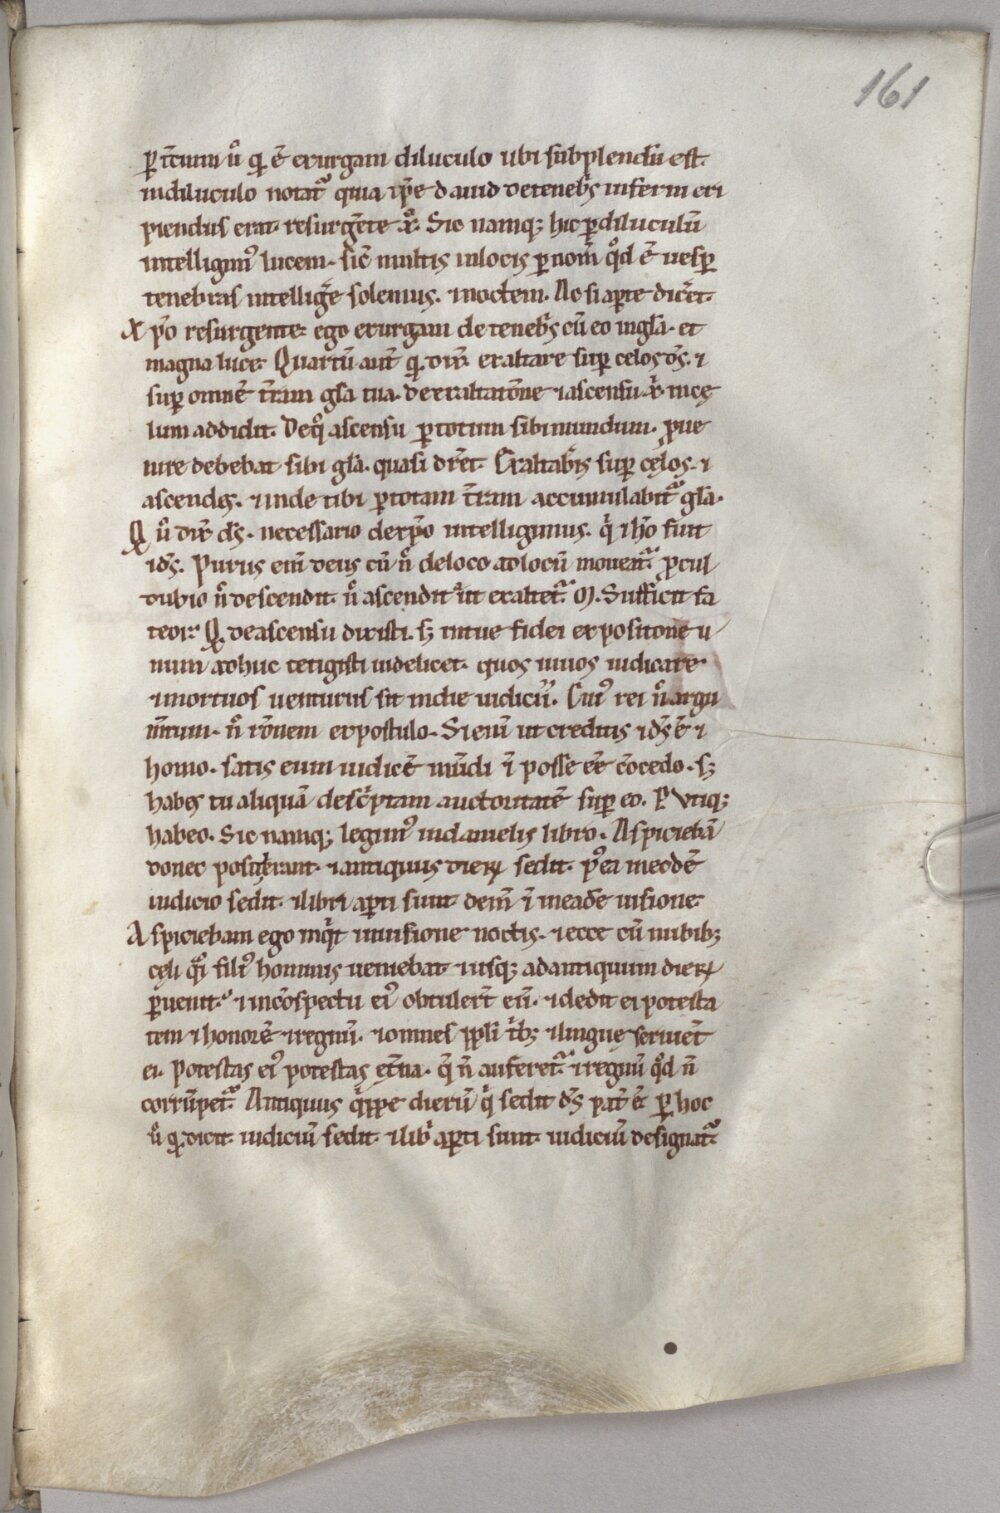 161
ꝑ t̄cium ū̊ q̇ ē exurgam diluculo ubi subplendū est.
indiluculo notat᷑ quia ip̄e dauid detenebͥs inferni eri
piendus erat. resurgēte xͦ. Sic namq; hic ꝑ diluculū
intelligimꝰ lucem. sic̄ multis inlocis ꝑ nom̄ qͦd ē uesꝑ
tenebras intelligͤe solemus. ⁊noctem. Ac si aꝑte dic̄et.
Xpͦo resurgente. ego exurgam de tenebͥs cū eo ingl̄a. et
magna luce. Quartū aut̄ q̇ dix̄. exaltare suꝑ celos d̄s. ⁊
suꝑ omnē t̄ram gl̄a tua. de exaltatōne ⁊ascensu xͥ ince
lum addidit. Deqͦ ascensu ꝑ totum sibi mundum. ꝓue
nire debebat sibi gl̄a. quasi dr̄et. Exaltabͥs suꝑ cęlos. ⁊
ascendes. ⁊inde tibi ꝑ totam t̄ram accumulabit᷑ gl̄a.
Q ū̊ dix̄ d̄s. necessario dexp̄o intelligimus. qͥ ⁊ hō fuit
⁊d̄s. Purus eni̅ deus cū n̄ deloco adlocū moueat᷑ ꝓcul
dubio n̄ descendit. n̄ ascendit ut exaltet᷑. M. Sufficit fa
teor. Q deascensu dixisti. s; intue fidei expositone u
num adhuc tetigisti uidelicet. quos uiuos iudicare
⁊mortuos uenturus sit indie iudicii. Cuiꝰ rei n̄ argu
m̄tum. n̄ rōnem expostulo. Si eni̅ ut creditis ⁊d̄s ē ⁊
homo. satis eum iudicē mūdi ī posse eē cōcedo. s;
habes tu aliquā desc̄ptam auctoritatē suꝑ eo. P Vtiq;
habeo. Sic namq; legimꝰ indanielis libro. Aspiciebā
donec posit̄ erant. ⁊antiquus dieꝝ sedit. Pͦea ineodē
iudicio sedit. ⁊libri aꝑti sunt. dein̄ ī eadē uisione.
Aspiciebam ego inqͥt inuisione noctis. ⁊ecce cū nubibꝫ
cęli qͣi filiꝰ hominis ueniebat. ⁊usq; adantiquum dieꝝ
ꝑuenit. ⁊incōspectu eiꝰ obtuler̄t eū. ⁊dedit ei potesta
tem ⁊honorē ⁊regnū. ⁊omnes ppl̄i t̄bꝫ ⁊lingue seruiēt
ei. Potestas eiꝰ potestas et̄na. q̄ n̄ auferet᷑. ⁊regnū qͦd n̄
corrūpet᷑. Antiquus qͥppe dierū qͥ sedit d̄s pat̄ ē. ꝑ hoc
ū̊ q̇ dicit. iudiciū sedit. ⁊libͥ aꝑti sunt. iudiciū designat᷑.